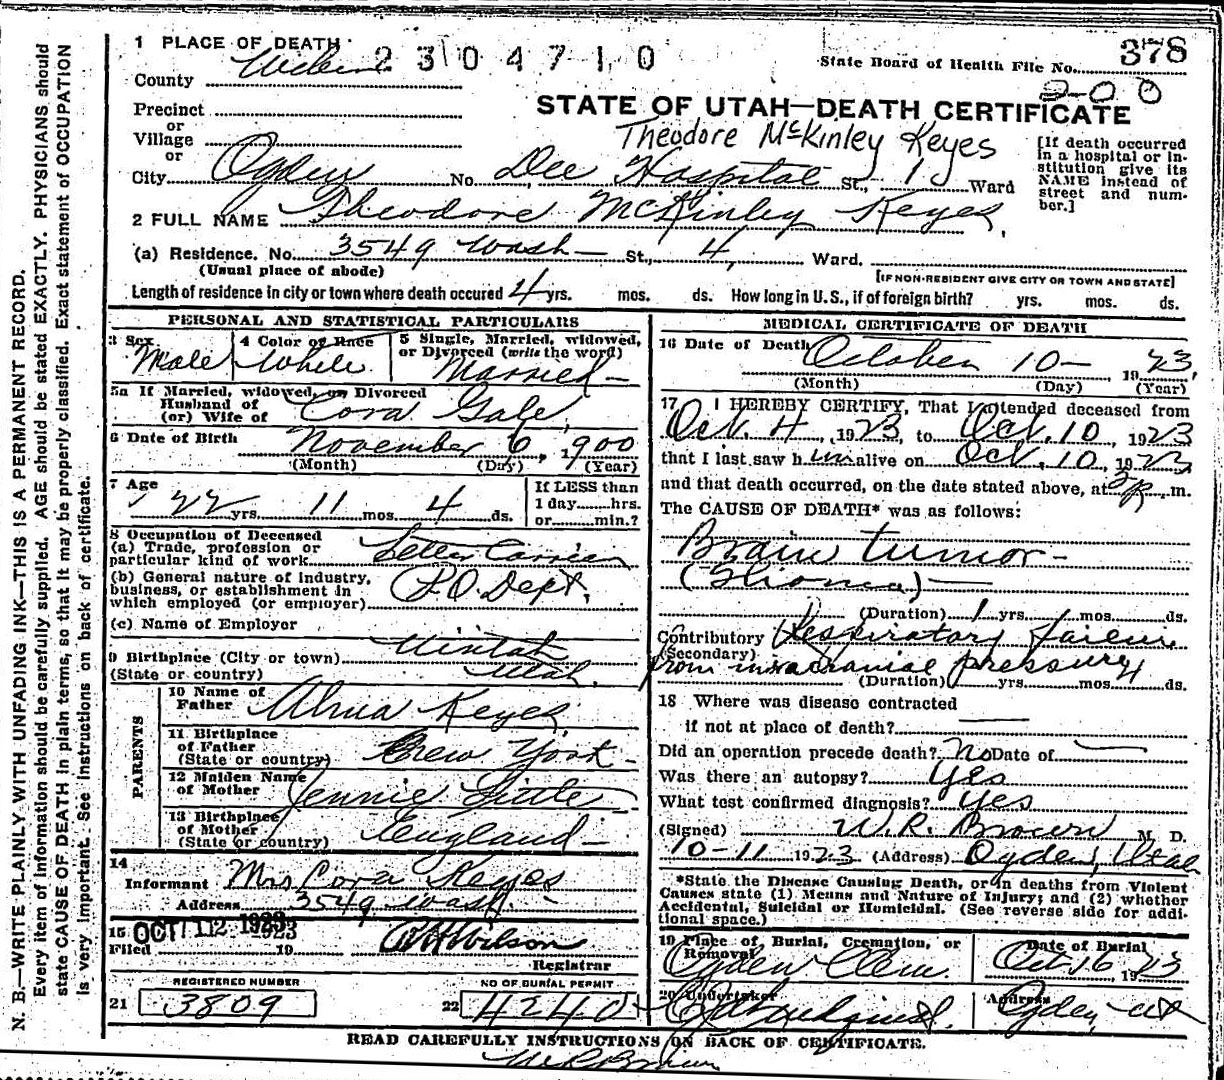 1 PLACE OF DEATH
2304710
State Board of Health File No. 378
County Weber
200
Precinct
STATE OF UTAH—DEATH CERTIFICATE
or
Village
Theodore McKinley Keyes
or
[If death occurred in a hospital or institution give its NAME instead of street and number.]
City Ogden No. Dee Hospital St., 1 Ward
2 FULL NAME Theodore McKinley Keyes
(a) Residence. No. 3549 Wash— St., 4, Ward.
(Usual place of abode) [IF NON-RESIDENT GIVE CITY OR TOWN AND STATE]
Length of residence in city or town where death occured 4 yrs. mos. ds. How long in U.S., if of foreign birth? yrs. mos. ds.
PERSONAL AND STATISTICAL PARTICULARS
3 Sex Male
4 Color or Race White
5 Single, Married, widowed, or Divorced (write the word) Married—
5a If Married, widowed, or Divorced
Husband of
(or) Wife of Cora Gale
6 Date of Birth November 6, 1900
(Month) (Day) (Year)
7 Age 22 yrs. 11 mos. 4 ds.
If LESS than
1 day hrs.
or min.?
8 Occupation of Deceased
(a) Trade, profession or
particular kind of work Letter Carrier
(b) General nature of industry,
business, or establishment in
which employed (or employer) P.O. Dept.
(c) Name of Employer
9 Birthplace (City or town) Uintah
(State or country) Utah.
PARENTS
10 Name of
Father Alma Keyes
11 Birthplace
of Father
(State or country) New York—
12 Maiden Name
of Mother Jennie Little
13 Birthplace
of Mother
(State or country) England—
14
Informant Mrs Cora Keyes
Address 3549 Wash.
15 OCT 12 1923
Filed 19
Registrar
REGISTERED NUMBER
21 3809
NO OF BURIAL PERMIT
22 4240
MEDICAL CERTIFICATE OF DEATH
16 Date of Death October 10— 1923,
(Month) (Day) (Year)
17 I HEREBY CERTIFY, That I attended deceased from
Oct. 4, 1923, to Oct. 10, 1923
that I last saw him alive on Oct. 10, 1923,
and that death occurred, on the date stated above, at m.
The CAUSE OF DEATH* was as follows:
Brain tumor—
(Glioma)—
(Duration) 1 yrs. mos. ds.
Contributory Respiratory failure,
(Secondary)
from intracranial pressure
(Duration) yrs. mos. ds.
18 Where was disease contracted
if not at place of death?
Did an operation precede death? No Date of
Was there an autopsy? Yes
What test confirmed diagnosis? Yes
(Signed) W. R. Brown M. D.
10-11 1923 (Address) Ogden, Utah
*State the Disease Causing Death, or in deaths from Violent
Causes state (1) Means and Nature of Injury; and (2) whether
Accidental, Suicidal or Homicidal. (See reverse side for addi-
tional space.)
19 Place of Burial, Cremation, or
Removal
Ogden Cem.
Date of Burial
Oct 16 1923
20 Undertaker
Address
Ogden, Ut
READ CAREFULLY INSTRUCTIONS ON BACK OF CERTIFICATE.
N. B.—WRITE PLAINLY WITH UNFADING INK—THIS IS A PERMANENT RECORD.
Every item of information should be carefully supplied. AGE should be stated EXACTLY. PHYSICIANS should
state CAUSE OF DEATH in plain terms, so that it may be properly classified. Exact statement of OCCUPATION
is very important. See instructions on back of certificate.